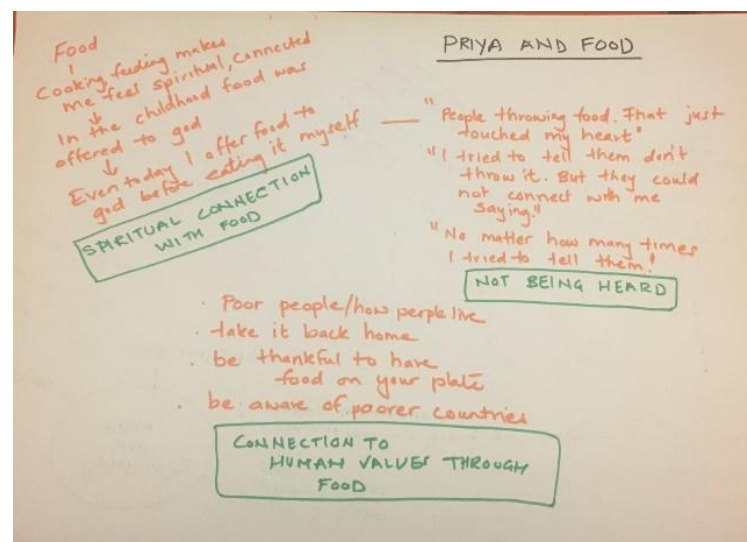 PRIYA AND FOOD
Food
Cooking, feeding makes
me feel spiritual, connected
In the childhood food was
offered to god
Even today I offer food to
god before eating it myself
SPIRITUAL CONNECTION
WITH FOOD
"People throwing food. That just
touched my heart"
"I tried to tell them don't
throw it. But they could
not connect with me
saying."
"No matter how many times
I tried to tell them!
NOT BEING HEARD
. Poor people/how people live
. take it back home
. be thankful to have
food on your plate
. be aware of poorer countries
CONNECTION TO
HUMAN VALUES THROUGH
FOOD